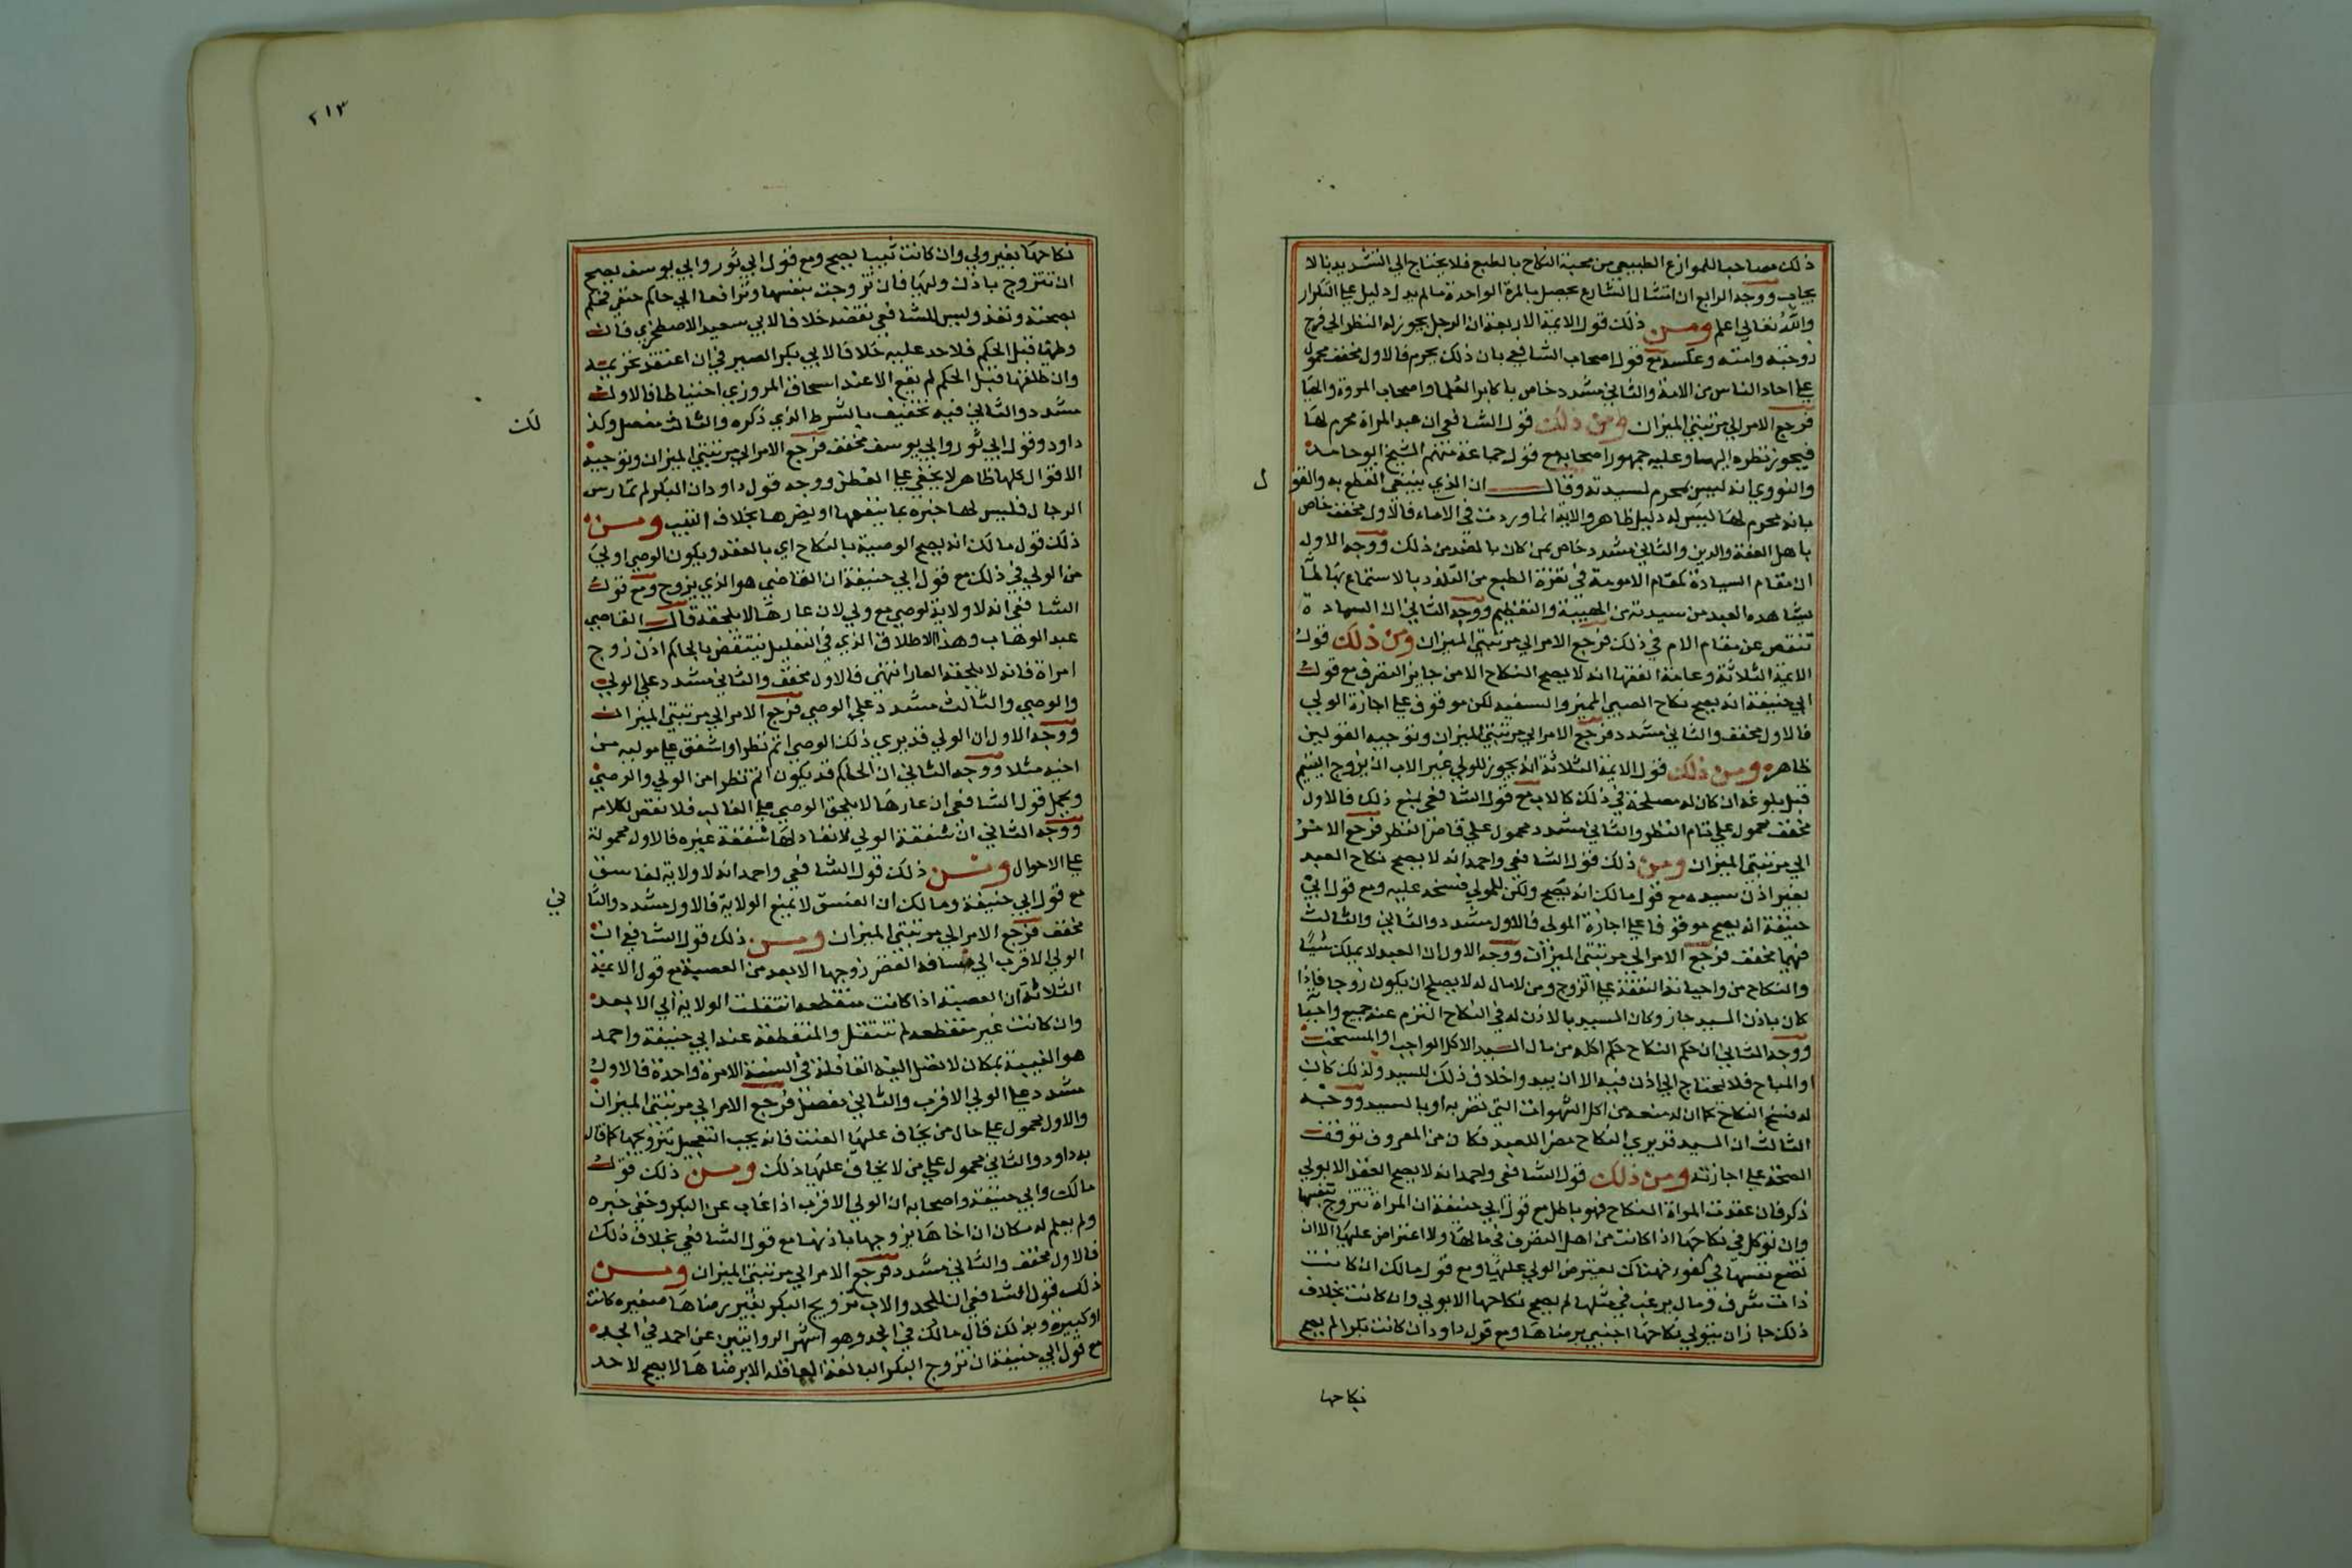 ذلك مصاحبا للموازع الطبيعي من محبة النكاح بالطبع فلا يحتاج الي التشديد بالا
يجاب ووجه الرابع ان امتثال الشارع يحصل بالمرة الواحدة ما لم يدل دليل علي التكرار
والله تعالي اعلم ومن ذلك قول الايمة الاربعة ان الرجل يجوز له النظر الي فرج
زوجته وامته وعكسه مع قول اصحاب الشافعي بان ذلك يحرم فالاول مخفف محمول
علي احاد الناس من الامة والثاني مشدد خاص باكابر العلما واصحاب المروة والحيا
فرجع الامر الي مرتبتي الميزان ومن ذلك قول الشافعي ان عبد المراة محرم لها
فيجوز نظره اليها وعليه جمهور اصحابه مع قول جماعة منهم الشيخ ابو حامد
والنووي انه ليس بمحرم لسيدته وقال ان الذي ينبغي القطع به والقو
ل
بانه محرم لها ليس له دليل ظاهر والاية انما وردت في الاماء فالاول مخفف خاص
باهل العفة والدين والثاني مشدد خاص بمن كان بالضد من ذلك ووجه الاول
ان مقام السيادة كمقام الامومة في نفرة الطبع من التلذذ بالاستمتاع بها لما
يشاهده العبد من سيدته من الهيبة والتعظيم ووجه الثاني ان السيادة
تنقص عن مقام الام في ذلك فرجع الامر الي مرتبتي الميزان ومن ذلك قول
الايمة الثلاثة وعامة الفقها انه لا يصح النكاح الا من جايز التصرف مع قول
ابي حنيفة انه يصح نكاح الصبي المميز والسفيه لكن موقوف علي اجازة الولي
فالاول مخفف والثاني مشدد فرجع الامر الي مرتبتي الميزان وتوجيه القولين
ظاهره ومن ذلك قول الايمة الثلاثة انه يجوز للولي غير الاب ان يزوج اليتيم
قبل بلوغه ان كان له مصلحة في ذلك كالاب مع قول الشافعي بمنع ذلك فالاول
مخفف محمول علي تام النظر والثاني مشدد محمول علي قاصر النظر فرجع الامر
الي مرتبتي الميزان ومن ذلك قول الشافعي واحمد انه لا يصح نكاح العبد
بغير اذن سيده مع قول مالك انه يصح ولكن للمولي فسخه عليه ومع قول ابي
حنيفة انه يصح موقوفا علي اجازة المولي فالاول مشدد والثاني والثالث
فيهما مخفف فرجع الامر الي مرتبتي الميزان ووجه الاول ان العبد لا يملك شيئا
والنكاح من واجباته النفقة علي الزوج ومن لا مال له لا يصلح ان يكون زوجا فاذا
كان باذن السيد جاز وكان السيد بالاذن له في النكاح التزم عنه جميع واجباته
ووجه الثاني ان حكم النكاح حكم اكله من مال السيد الاكل الواجب او المستحب
او المباح فلا يحتاج الي اذن فيه الا ان يبدو اخلاف ذلك للسيد ولذلك كان
له فسخ النكاح كما ان له منعه من اكل الشهوات التي تضر به او بالسيد ووجه
الثالث ان السيد قد يري النكاح مضرا للعبد فكان من المعروف توقف
الصحة علي اجازته ومن ذلك قول الشافعي واحمد انه لا يصح العقد الا بولي
ذكر فان عقدت المراة النكاح فهو باطل مع قول ابي حنيفة ان المراة تتزوج بنفسها
وان توكل في نكاحها اذا كانت من اهل التصرف في مالها ولا اعتراض عليها الا ان
تضع نفسها في كفوء فهناك يعترض الولي عليها ومع قول مالك ان كانت
ذات شرف ومال يرغب في مثلها لم يصح نكاحها الا بولي وان كانت بخلاف
ذلك جاز ان يتولي نكاحها اجنبي برضاها ومع قول داود ان كانت بكرا لم يصح
نكاحها
٢١٣
نكاحها بغير ولي وان كانت ثيبا يصح ومع قول ابي ثور وابي يوسف يصح
ان تتزوج باذن وليها فان تزوجت بنفسها وترافعا الي حاكم حنفي فحكم
بصحته ونفذ وليس للشافعي نقضه خلافا لابي سعيد الاصطخري فان
وطئها قبل الحكم فلا حد عليه خلافا لابي بكر الصيرفي ان اعتقد تحريمه
وان طلقها قبل الحكم لم يقع الا عند اسحاق المروزي احتياطا فالاول
مشدد والثاني فيه تخفيف بالشرط الذي ذكره والثالث مفصل وكذ
لك
داود وقول ابي ثور وابي يوسف مخفف فرجع الامر الي مرتبتي الميزان وتوجيه
الاقوال كلها ظاهر لا يخفي علي الفطن ووجه قول داود ان البكر لم تمارس
الرجال فليس لها خبره بما ينفعها او يضرها بخلاف الثيب ومن
ذلك قول مالك انه يصح الوصية بالنكاح اي بالعقد ويكون الوصي اولي
من الولي في ذلك مع قول ابي حنيفة ان القاضي هو الذي يزوج ومع قول
الشافعي انه لا ولاية لوصي مع ولي لان عارها لا يلحقه قال القاضي
عبد الوهاب وهذا الاطلاق الذي في التعليل ينتقض بالحاكم اذن زوج
امراة فانه لا يلحقه العار انتهي فالاول مخفف والثاني مشدد علي الولي
والوصي والثالث مشدد علي الوصي فرجع الامر الي مرتبتي الميزان
ووجه الاول ان الولي قد يري ذلك الوصي اتم نظرا واشفق علي موليه من
اخيه مثلا ووجه الثاني ان الحاكم قد يكون اتم نظرا من الولي والوصي
ويحمل قول الشافعي ان عارها لا يلحق الوصي علي الغالب فلا نقض لكلامه
ووجه الثاني ان شفقة الولي لا تعادلها شفقة غيره فالاول محمولة
علي الاحوال ومن ذلك قول الشافعي واحمد انه لا ولاية لفاسق
مع قول ابي حنيفة ومالك ان الفسق لا يمنع الولاية فالاول مشدد والثا
ني
مخفف فرجع الامر الي مرتبتي الميزان ومن ذلك قول الشافعي ان
الولي الاقرب الي مسافة القصر زوجها الابعد من العصبة مع قول الايمة
الثلاثة ان العصبة اذا كانت منقطعه انتقلت الولاية الي الابعد
وان كانت غير منقطعه لم تنتقل والمنقطعة عند ابي حنيفة واحمد
هو الغيبة بمكان لا تصل اليه القافلة في السنة الا مرة واحدة فالاول
مشدد علي الولي الاقرب والثاني مفصل فرجع الامر الي مرتبتي الميزان
والاول محمول علي حال من يخاف عليها العنت فانه يجب التعجيل بتزويجها كما قال
به داود والثاني محمول علي من لا يخاف عليها ذلك ومن ذلك قول
مالك وابي حنيفة واصحابه ان الولي الاقرب اذا غاب عن البكر وخفي خبره
ولم يعلم له مكان ان اخاها يزوجها باذنها مع قول الشافعي بخلاف ذلك
فالاول مخفف والثاني مشدد فرجع الامر الي مرتبتي الميزان ومن
ذلك قول الشافعي ان للجد والاب تزويج البكر بغير رضاها صغيره كانت
او كبيرة وبذلك قال مالك في الجد وهو اشهر الروايتين عن احمد في الجد
مع قول ابي حنيفة ان تزوج البكر البالغة العاقله الا برضاها لا يصح لاحد